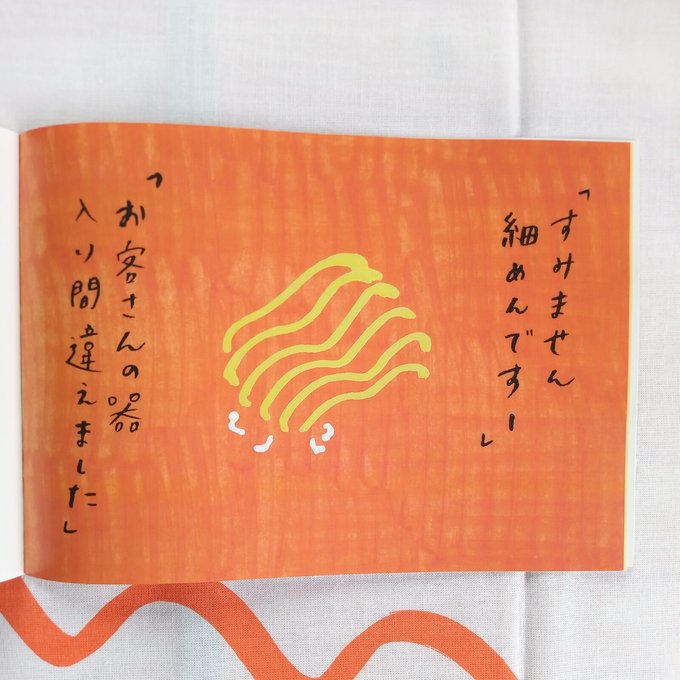 「すみません
細めんですー」
「お客さんの器
入り間違えました」